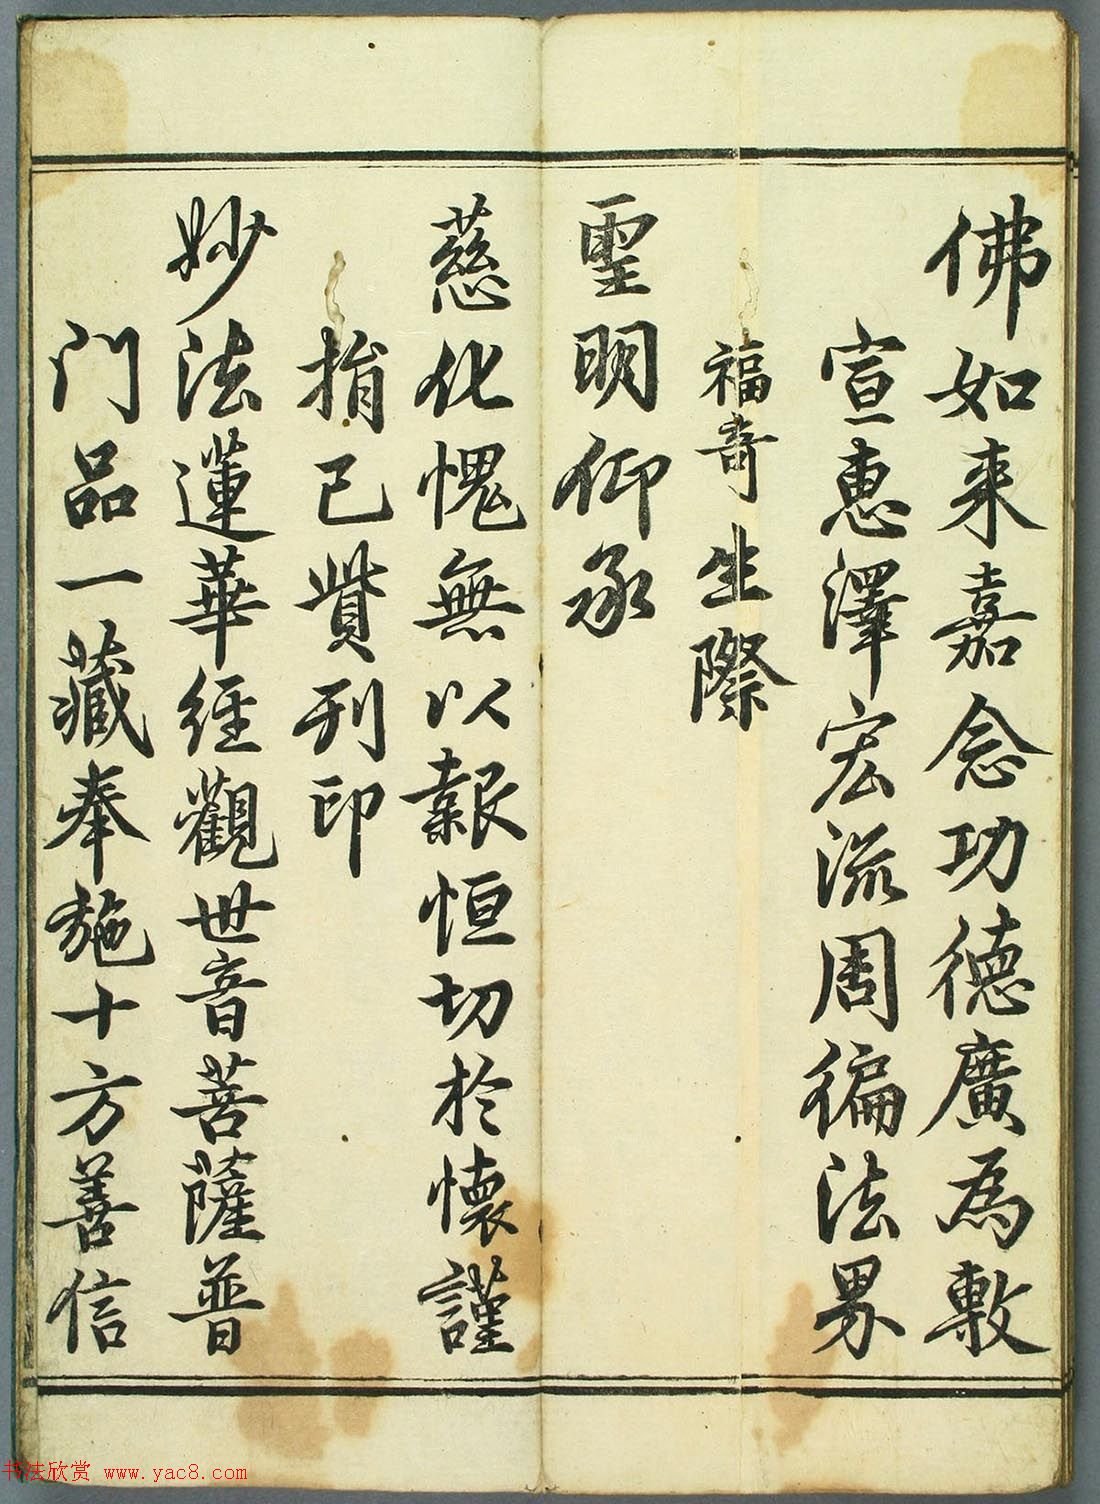 佛如来嘉念功德廣為敷
宣惠澤宏流周徧法界
福奇生際
聖明仰承
慈化愧無以報恒切於懷謹
捐己貲刊印
妙法蓮華經觀世音菩薩普
门品一藏奉施十方善信
书法欣赏 www.yac8.com